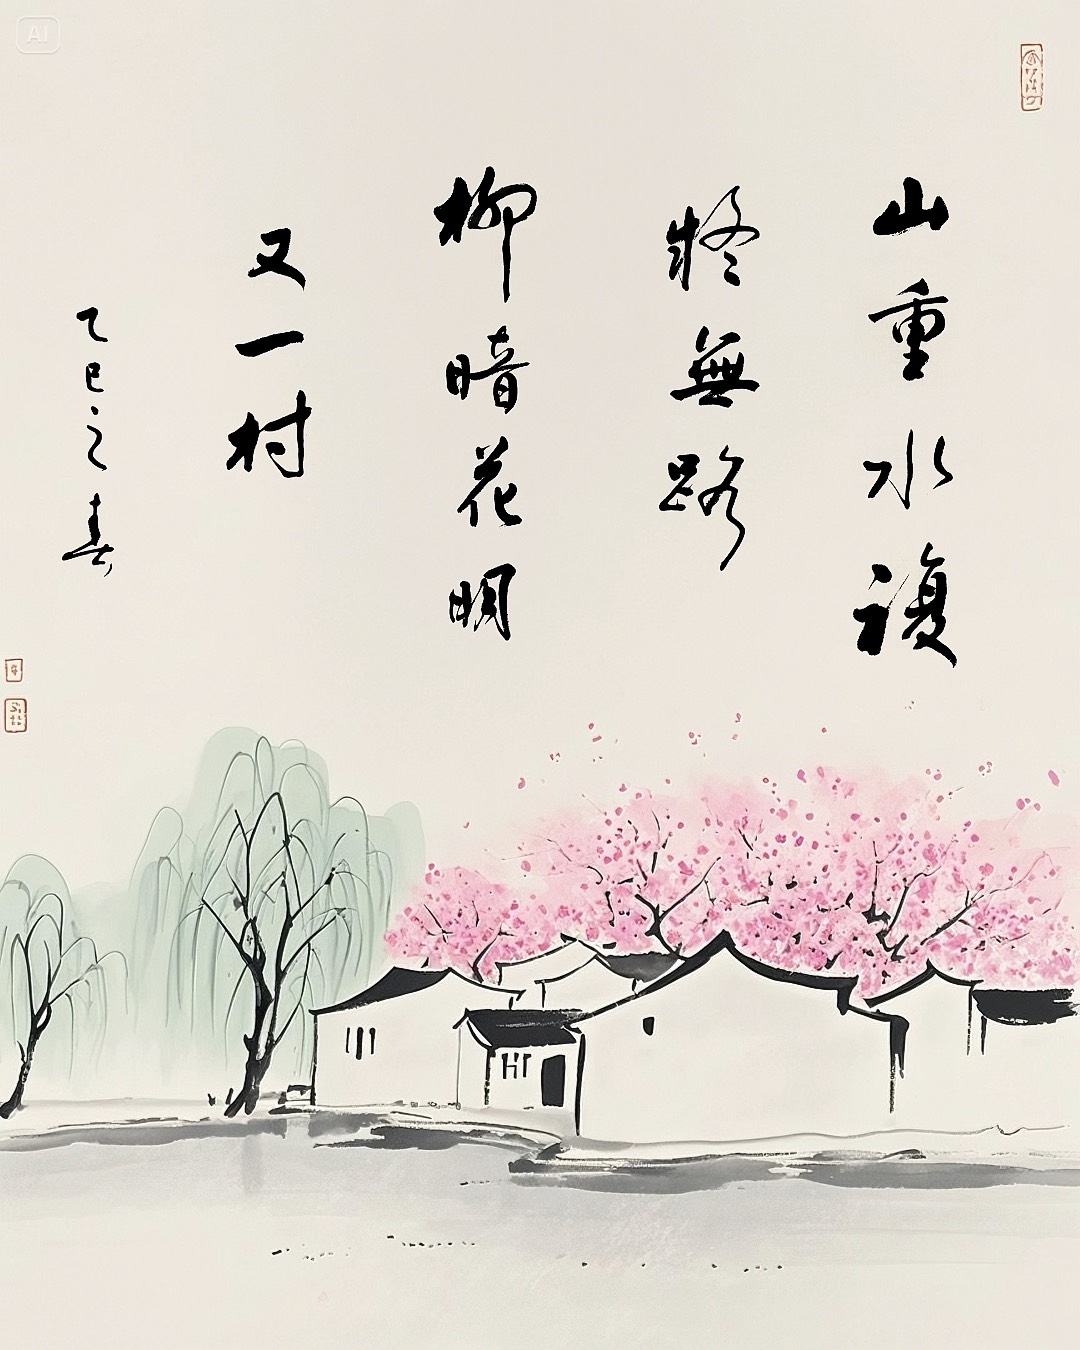 山重水複
終無路
柳暗花明
又一村
乙巳之春
AI